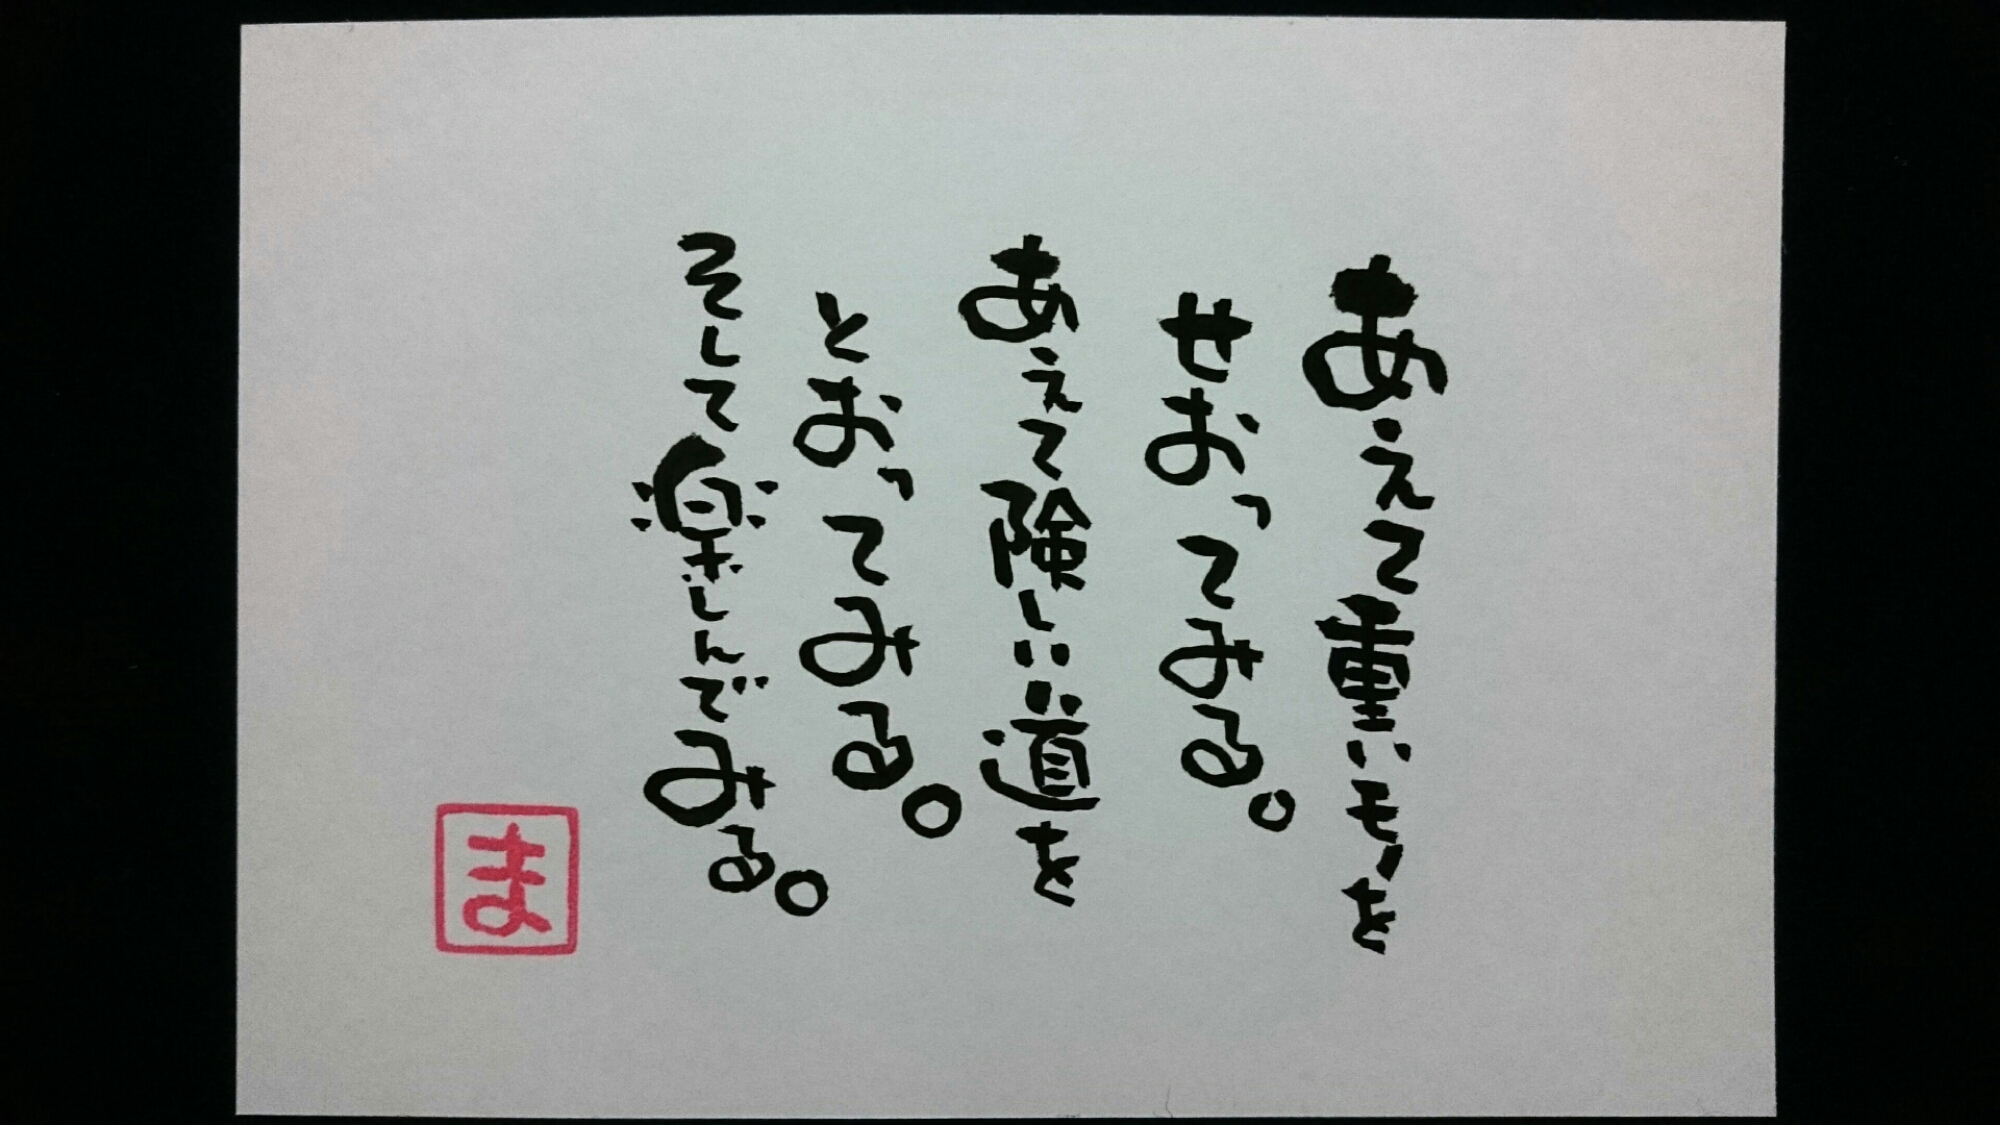 あえて重いモノを
せおってみる。
あえて険しい道を
とおってみる。
そして楽しんでみる。
ま